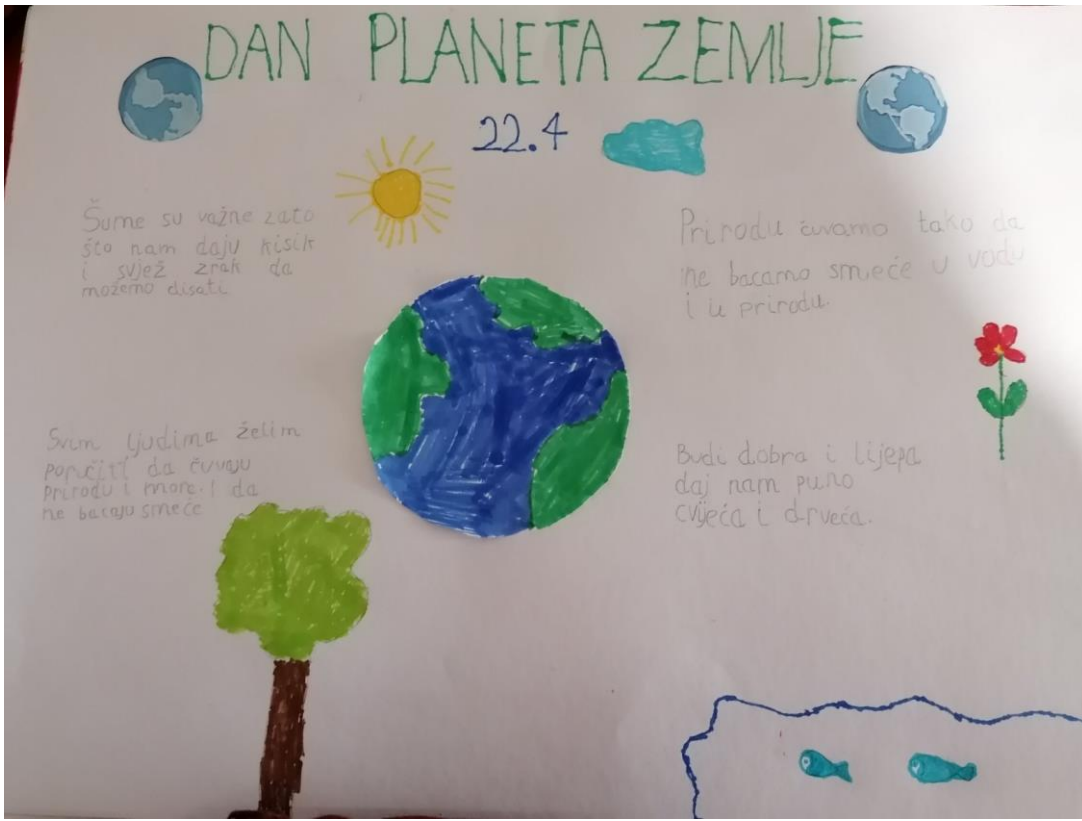 DAN PLANETA ZEMLJE
22.4
Šume su važne zato
što nam daju kisik
i svjež zrak da
možemo disati
Prirodu čuvamo tako da
ne bacamo smeće u vodu
i u prirodu.
Svim ljudima želim
poručiti da čuvaju
prirodu i more. I da
ne bacaju smeće
Budi dobra i lijepa
daj nam puno
cvijeća i drveća.